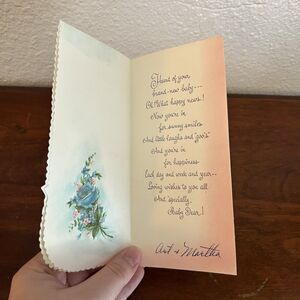 Heard of your
brand-new baby---
Oh! What happy news!
Now you're in
for sunny smiles
And little laughs and "goo's"
And you're in
for happiness
Each day and week and year--
Loving wishes to you all
And 'specially,
Baby Dear!
Art & Martha